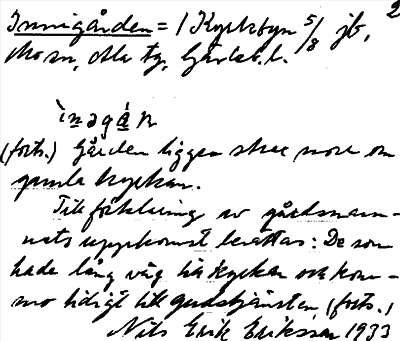 2
Innigården = 1 Kyrkbyn 5/8 jb,
Mo sn, Ala tg, Gävleb. l.
ìnagá̱n
(forts.) Gården ligger strax norr om
gamla kyrkan.
Till förklaring av gårdsnam-
nets uppkomst berättas: De som
hade lång väg till kyrkan och kom-
mo tidigt till gudstjänsten (forts.)
Nils Erik Eriksson 1933